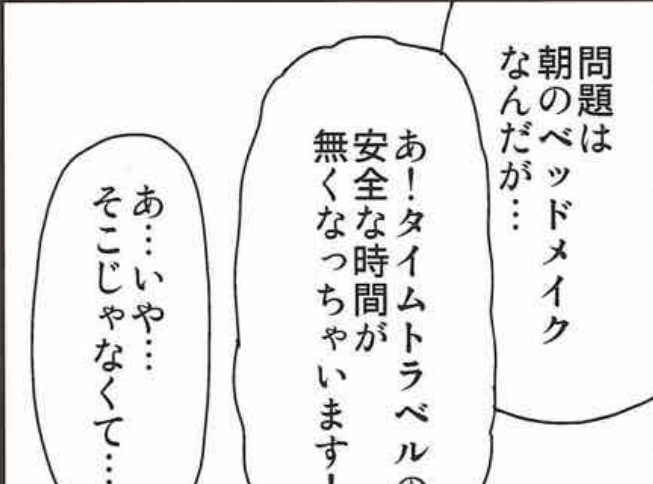 問題は
朝のベッドメイク
なんだが…
あ！タイムトラベルの
安全な時間が
無くなっちゃいます！
あ…いや…
そこじゃなくて…